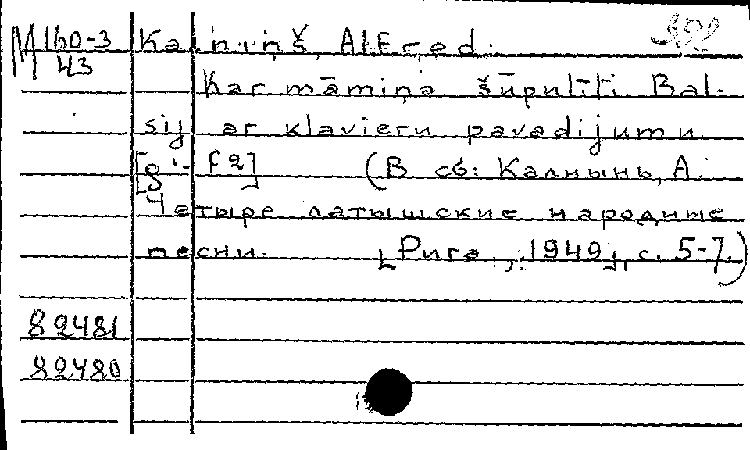 M 160-3 Kalniņš, Alfred.
43
Kar māmiņa šūpulīti. Bal-
sij ar klavieru pavadijumu.
[g'- f2] (В сб: Калнынь, А.
Четыре латышские народные
песни. [Рига, 1949], с. 5-7.)
82481
82480